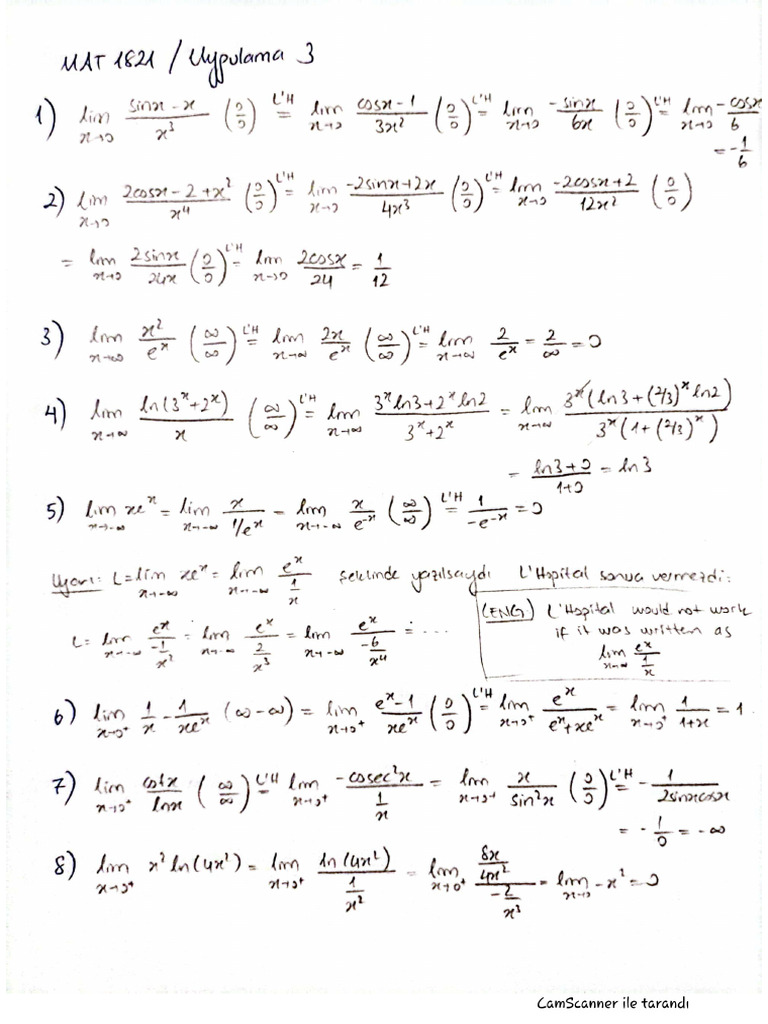 MAT 1821 / Uygulama 3
1) lim x→0 (sinx - x)/x³ (0/0) L'H = lim x→0 (cosx - 1)/3x² (0/0) L'H = lim x→0 -sinx/6x (0/0) L'H = lim x→0 -cosx/6
= -1/6
2) lim x→0 (2cosx - 2 + x²)/x⁴ (0/0) L'H = lim x→0 (-2sinx + 2x)/4x³ (0/0) L'H = lim x→0 (-2cosx + 2)/12x² (0/0)
= lim x→0 2sinx/24x (0/0) L'H = lim x→0 2cosx/24 = 1/12
3) lim x→∞ x²/eˣ (∞/∞) L'H = lim x→∞ 2x/eˣ (∞/∞) L'H = lim x→∞ 2/eˣ = 2/∞ = 0
4) lim x→∞ ln(3ˣ + 2ˣ)/x (∞/∞) L'H = lim x→∞ (3ˣ ln3 + 2ˣ ln2)/(3ˣ + 2ˣ) = lim x→∞ 3ˣ(ln3 + (2/3)ˣ ln2)/3ˣ(1 + (2/3)ˣ)
= (ln3 + 0)/(1 + 0) = ln3
5) lim x→-∞ xeˣ = lim x→-∞ x/(1/eˣ) = lim x→-∞ x/e⁻ˣ (∞/∞) L'H = 1/(-e⁻ˣ) = 0
Uyarı: L = lim x→-∞ xeˣ = lim x→-∞ eˣ/(1/x) şeklinde yazılsaydı L'Hopital sonuç vermezdi:
L = lim x→-∞ eˣ/(-1/x²) = lim x→-∞ eˣ/(2/x³) = lim x→-∞ eˣ/(-6/x⁴) = ...
(ENG) L'Hopital would not work
if it was written as
lim x→-∞ eˣ/(1/x)
6) lim x→0⁺ 1/x - 1/(xeˣ) (∞ - ∞) = lim x→0⁺ (eˣ - 1)/(xeˣ) (0/0) L'H = lim x→0⁺ eˣ/(eˣ + xeˣ) = lim x→0⁺ 1/(1+x) = 1
7) lim x→0⁺ cotx/lnx (∞/∞) L'H = lim x→0⁺ -cosec²x/(1/x) = lim x→0⁺ x/sin²x (0/0) L'H = - 1/(2sinxcosx)
= -1/0 = -∞
8) lim x→0⁺ x² ln(4x²) = lim x→0⁺ ln(4x²)/(1/x²) = lim x→0⁺ (8x/4x²)/(-2/x³) = lim x→0 -x² = 0
CamScanner ile tarandı